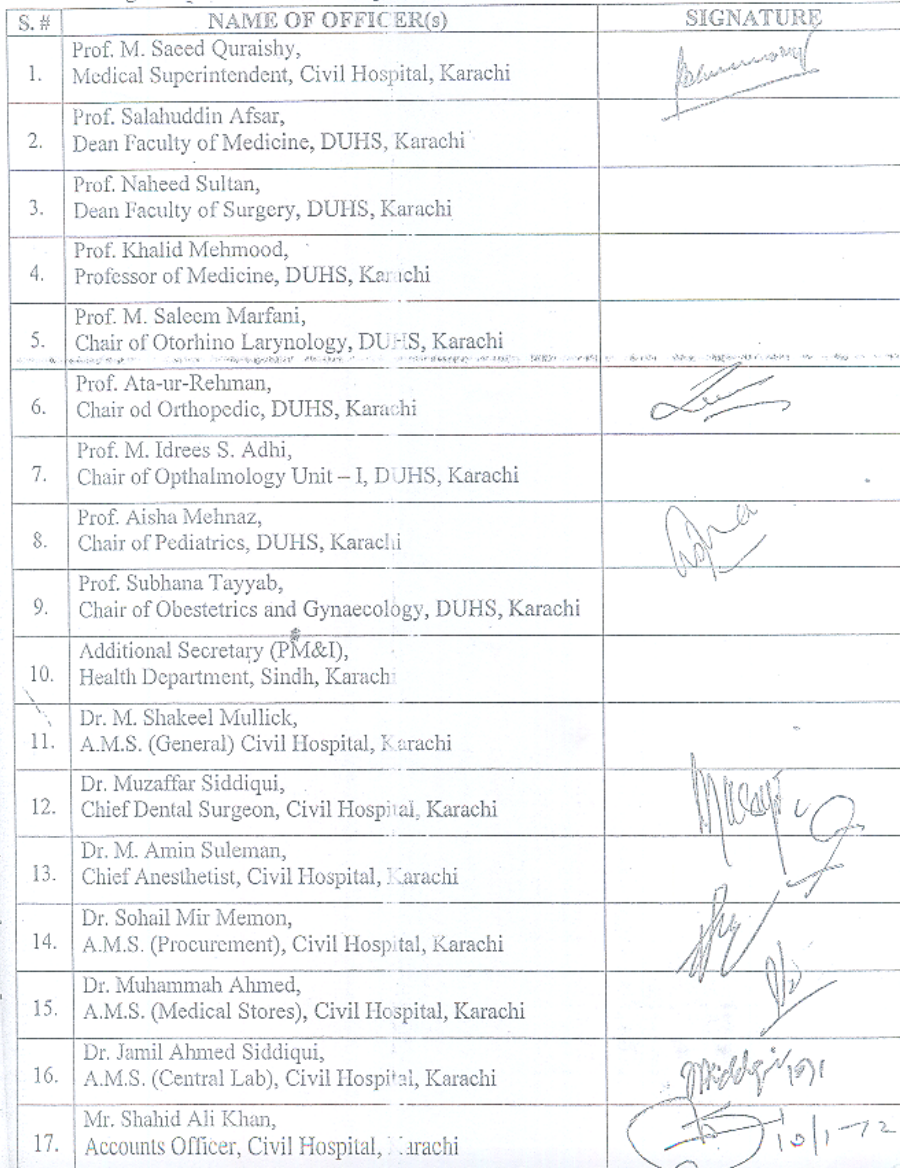 S. # NAME OF OFFICER(s) SIGNATURE
1. Prof. M. Saeed Quraishy,
Medical Superintendent, Civil Hospital, Karachi
2. Prof. Salahuddin Afsar,
Dean Faculty of Medicine, DUHS, Karachi
3. Prof. Naheed Sultan,
Dean Faculty of Surgery, DUHS, Karachi
4. Prof. Khalid Mehmood,
Professor of Medicine, DUHS, Karachi
5. Prof. M. Saleem Marfani,
Chair of Otorhino Larynology, DUHS, Karachi
6. Prof. Ata-ur-Rehman,
Chair od Orthopedic, DUHS, Karachi
7. Prof. M. Idrees S. Adhi,
Chair of Opthalmology Unit – I, DUHS, Karachi
8. Prof. Aisha Mehnaz,
Chair of Pediatrics, DUHS, Karachi
9. Prof. Subhana Tayyab,
Chair of Obestetrics and Gynaecology, DUHS, Karachi
10. Additional Secretary (PM&I),
Health Department, Sindh, Karachi
11. Dr. M. Shakeel Mullick,
A.M.S. (General) Civil Hospital, Karachi
12. Dr. Muzaffar Siddiqui,
Chief Dental Surgeon, Civil Hospital, Karachi
13. Dr. M. Amin Suleman,
Chief Anesthetist, Civil Hospital, Karachi
14. Dr. Sohail Mir Memon,
A.M.S. (Procurement), Civil Hospital, Karachi
15. Dr. Muhammah Ahmed,
A.M.S. (Medical Stores), Civil Hospital, Karachi
16. Dr. Jamil Ahmed Siddiqui,
A.M.S. (Central Lab), Civil Hospital, Karachi
17. Mr. Shahid Ali Khan,
Accounts Officer, Civil Hospital, Karachi 10/1-12